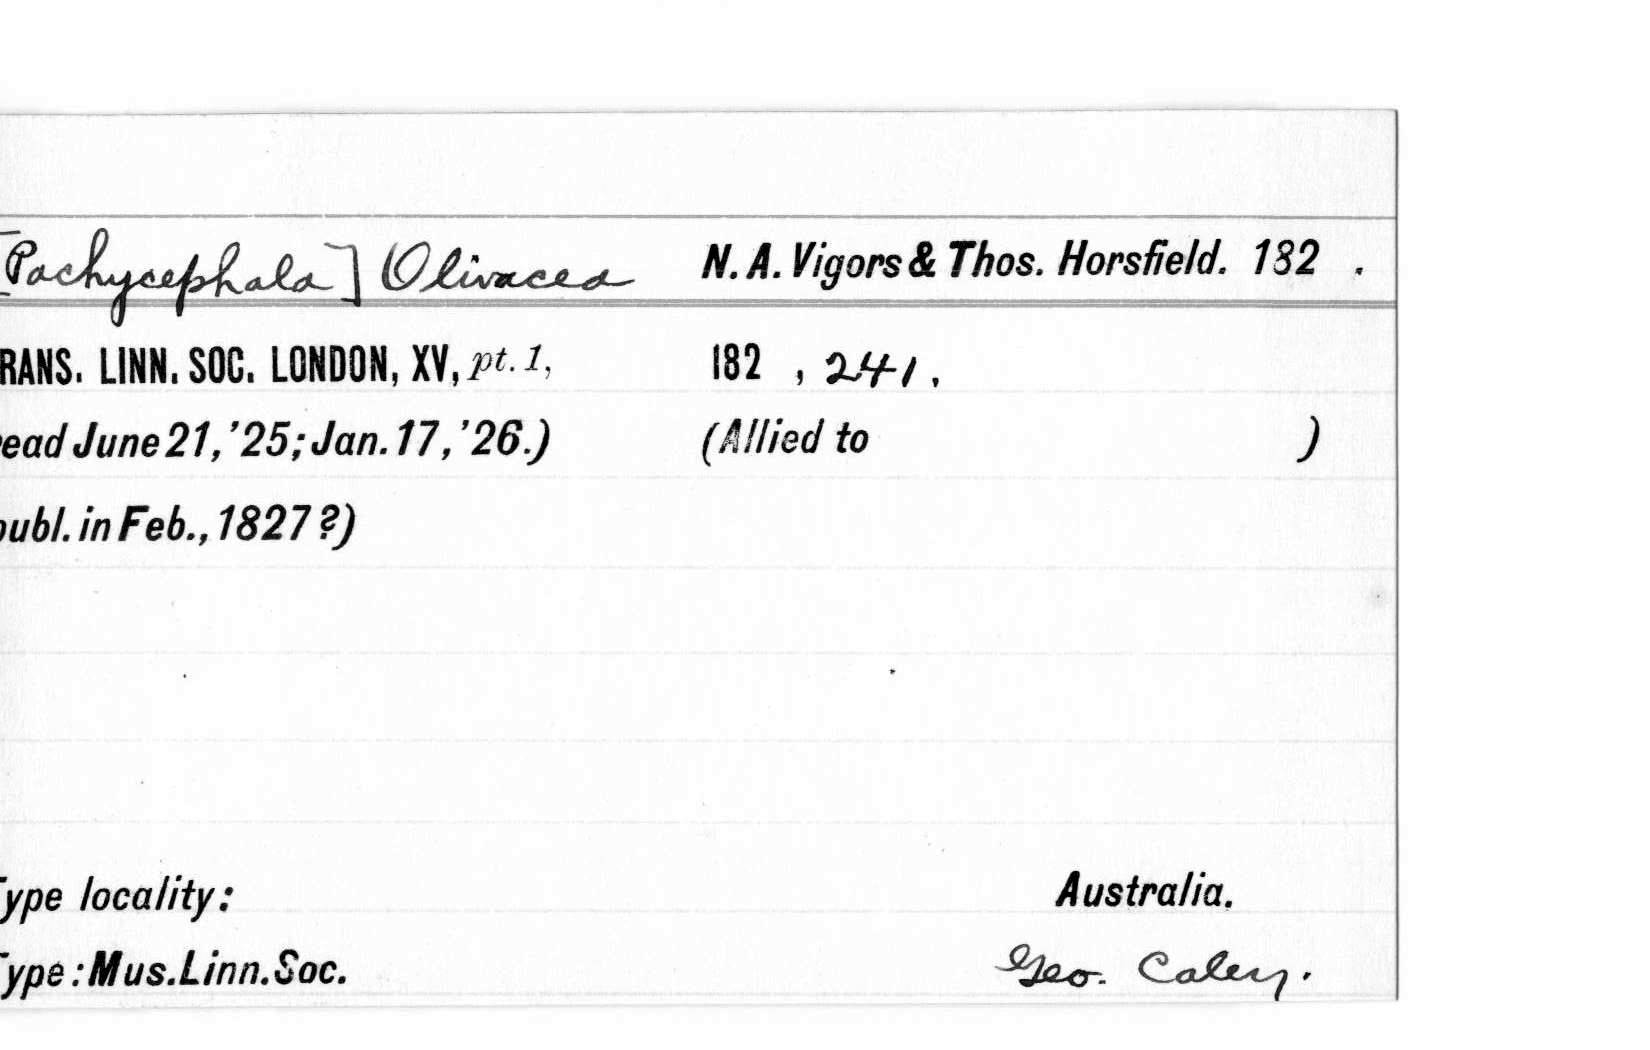 [Pachycephala] Olivacea N. A. Vigors & Thos. Horsfield. 182 .
RANS. LINN. SOC. LONDON, XV, pt. 1, 182 , 241.
ead June 21, '25; Jan. 17, '26.) (Allied to )
publ. in Feb., 1827?)
Type locality: Australia.
Type: Mus. Linn. Soc. Geo. Caley.